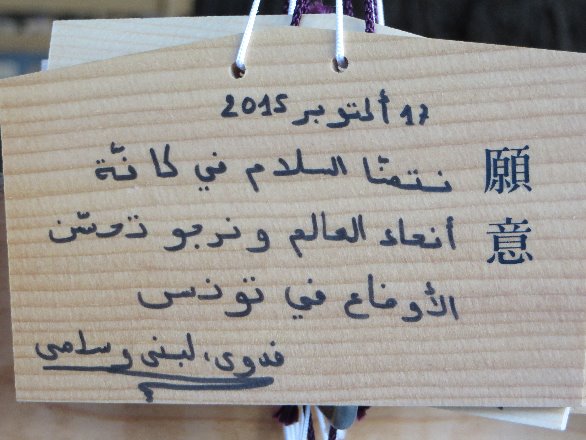 願意
17 أكتوبر 2015
نتمنّا السلام في كافّة
أنحاء العالم ونرجو تحسّن
الأوضاع في تونس
فدوى، لبنى وسامي